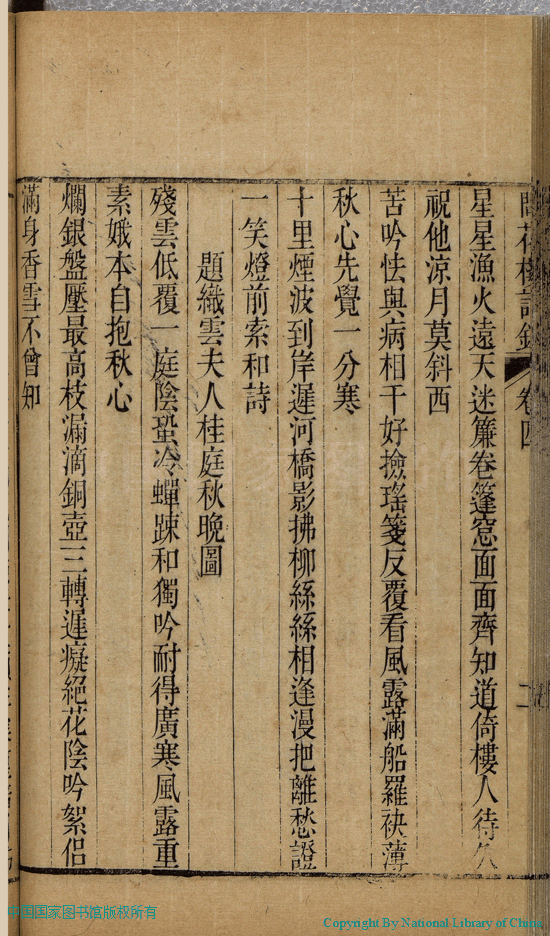 問花樓詩鈔 卷四 二
星星漁火遠天迷簾卷篷窓面面齊知道倚樓人待久
祝他涼月莫斜西
苦吟怯與病相干好撿瑤箋反覆看風露滿船羅袂薄
秋心先覺一分寒
十里煙波到岸遲河橋影拂柳絲絲相逢漫把離愁證
一笑燈前索和詩
題織雲夫人桂庭秋晚圖
殘雲低覆一庭陰蛩冷蟬踈和獨吟耐得廣寒風露重
素娥本自抱秋心
爛銀盤壓最高枝漏滴銅壺三轉遲癡絕花陰吟絮侶
滿身香雪不曾知
中国国家图书馆版权所有
Copyright By National Library of China